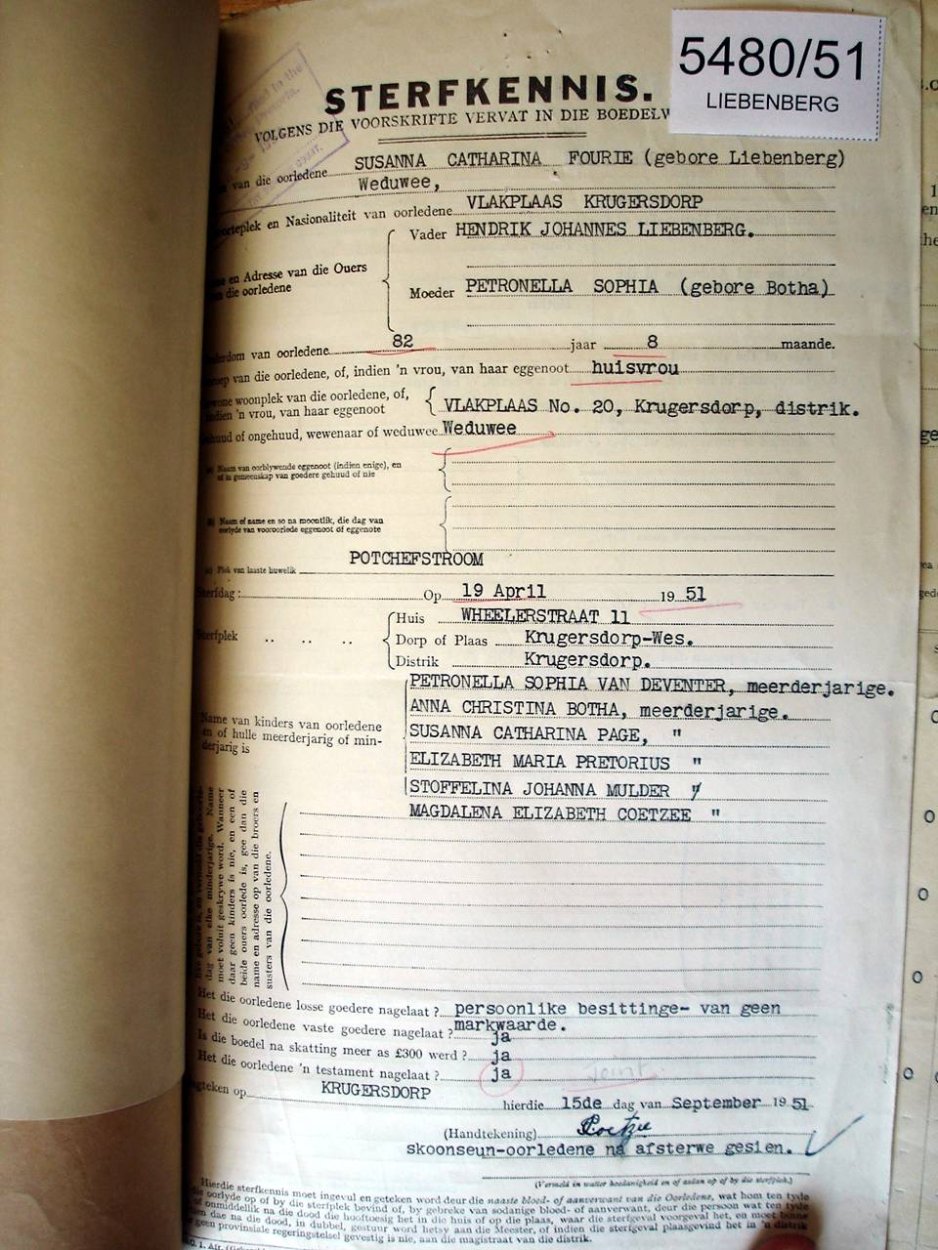 5480/51
LIEBENBERG
STERFKENNIS.
VOLGENS DIE VOORSKRIFTE VERVAT IN DIE BOEDELW
van die oorledene SUSANNA CATHARINA FOURIE (gebore Liebenberg)
Weduwee,
en Nasionaliteit van oorledene VLAKPLAAS KRUGERSDORP
Vader HENDRIK JOHANNES LIEBENBERG.
en Adresse van die Ouers
die oorledene
Moeder PETRONELLA SOPHIA (gebore Botha)
van oorledene 82 jaar 8 maande.
van die oorledene, of, indien 'n vrou, van haar eggenoot huisvrou
woonplek van die oorledene, of,
indien 'n vrou, van haar eggenoot VLAKPLAAS No. 20, Krugersdorp, distrik.
of ongehuud, wewenaar of weduwee Weduwee
Naam van oorblywende eggenoot (indien enige), en
of in gemeenskap van goedere gehuud of nie
Naam of name en so na moontlik, die dag van
oorlyde van vooroorlede eggenoot of eggenote
Plek van laaste huwelik POTCHEFSTROOM
Sterfdag: Op 19 April 19 51
Huis WHEELERSTRAAT 11
Sterfplek .. .. .. Dorp of Plaas Krugersdorp-Wes.
Distrik Krugersdorp.
PETRONELLA SOPHIA VAN DEVENTER, meerderjarige.
ANNA CHRISTINA BOTHA, meerderjarige.
Name van kinders van oorledene
en of hulle meerderjarig of min-
derjarig is
SUSANNA CATHARINA PAGE, "
ELIZABETH MARIA PRETORIUS "
STOFFELINA JOHANNA MULDER "
MAGDALENA ELIZABETH COETZEE "
dag van elke minderjarige. Name
moet voluit geskrywe word. Wanneer
daar geen kinders is nie, en een of
beide ouers oorlede is, gee dan die
name en adresse op van die broers en
susters van die oorledene.
Het die oorledene losse goedere nagelaat? persoonlike besittinge- van geen
markwaarde.
Het die oorledene vaste goedere nagelaat? ja
Is die boedel na skatting meer as £300 werd? ja
Het die oorledene 'n testament nagelaat? ja Joint
op KRUGERSDORP
hierdie 15de dag van September 19 51
(Handtekening) Coetzee
skoonseun-oorledene na afsterwe gesien.
(Vermeld in watter hoedanigheid en of aldan op of by die sterfplek.)
Hierdie sterfkennis moet ingevul en geteken word deur die naaste bloed- of aanverwant van die Oorledene, wat hom ten tyde
oorlyde op of by die sterfplek bevind of, by gebreke van sodanige bloed- of aanverwant, deur die persoon wat ten tyde
onmiddellik na die dood die hooftoesig het in die huis of op die plaas, waar die sterfgeval voorgeval het, en moet binne
dae na die dood, in dubbel, gestuur word hetsy aan die Meester, of indien die sterfgeval plaasgevind het in 'n distrik
geen provinsiale regeringsetel gevestig is nie, aan die magistraat van die distrik.